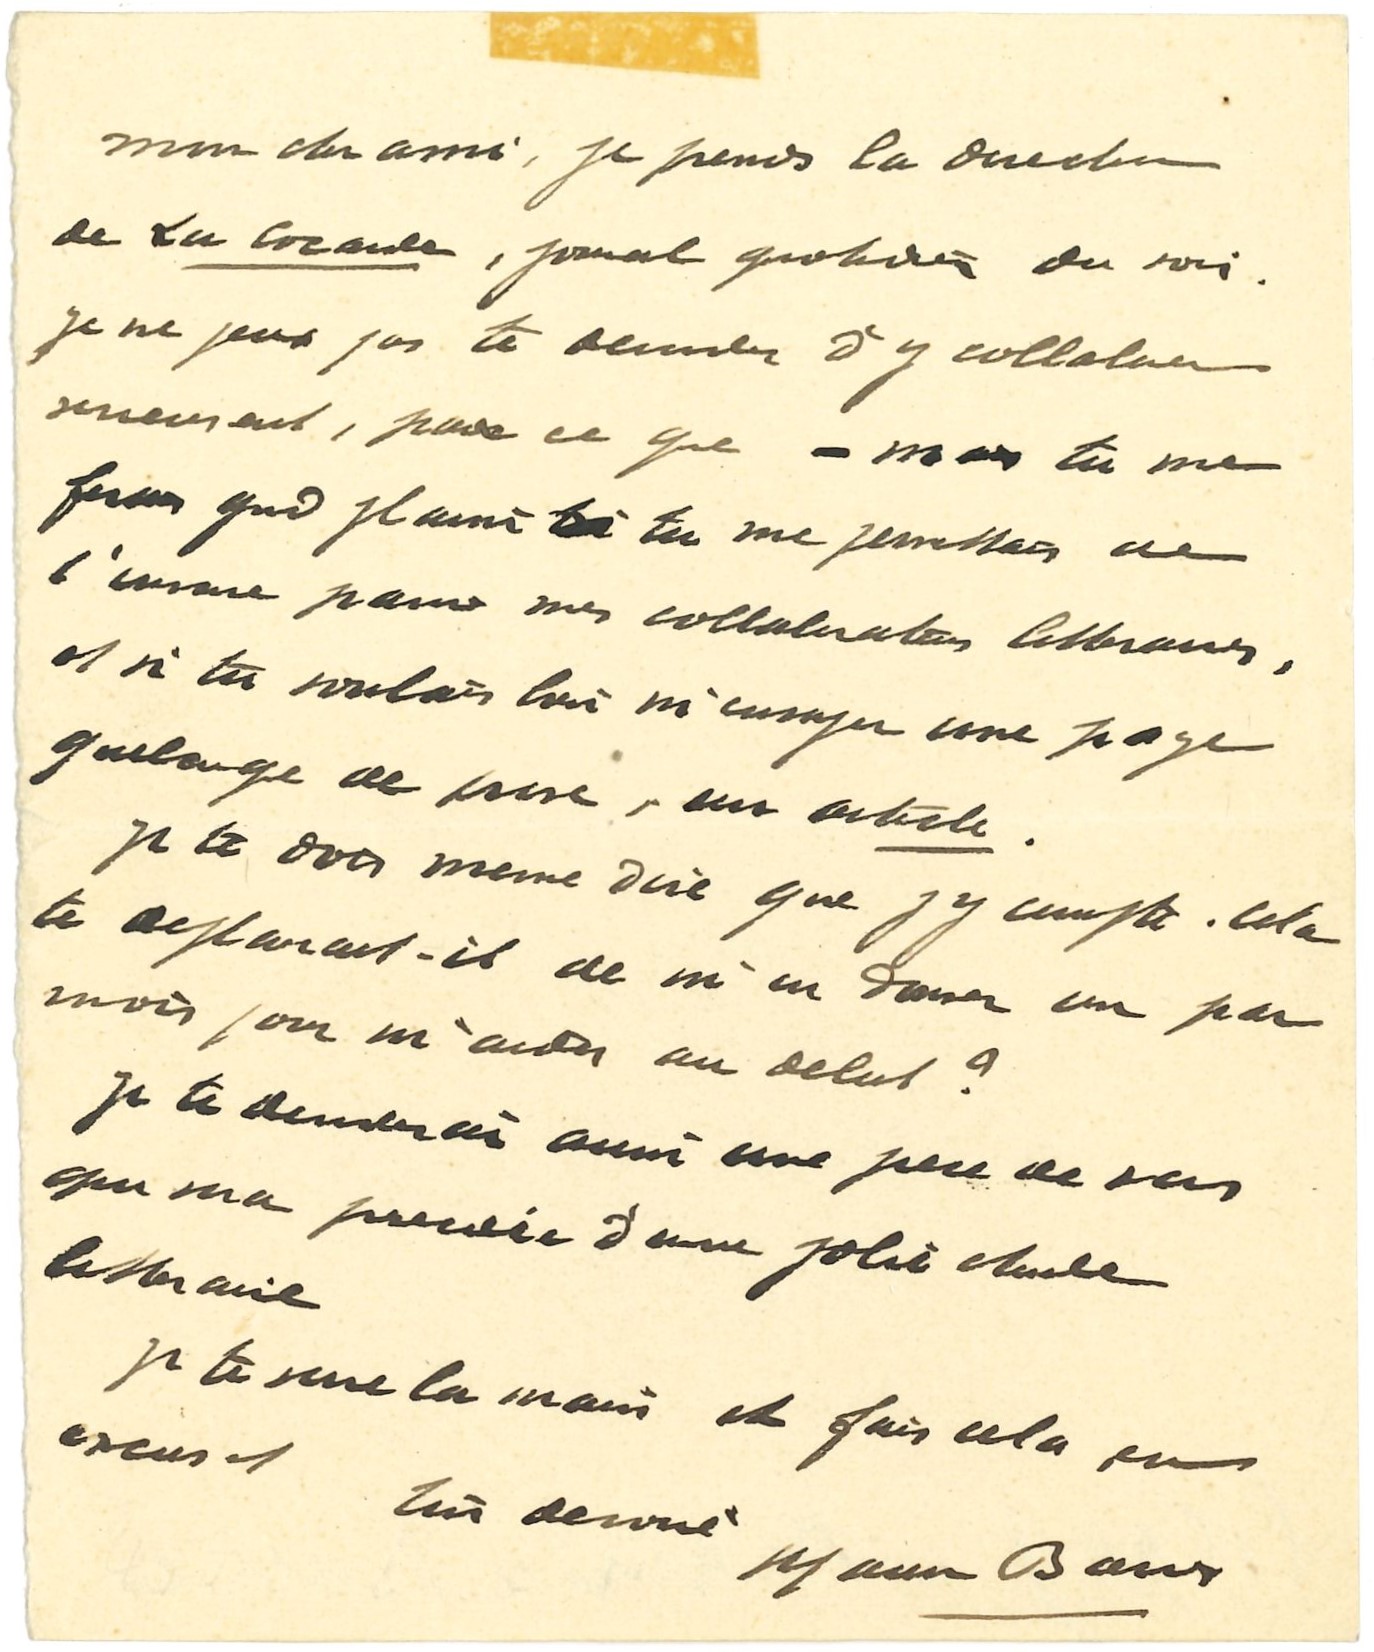 mon cher ami, je prends la direction
de La Cocarde, journal quotidien du soir.
je ne peux pas te demander d'y collaborer
serieusement, parce ce que – mais tu me
ferais grand plaisir si tu me permettais de
t'inscrire parmi mes collaborateurs litteraires,
et si tu voulais bien m'envoyer une page
quelconque de prose, un article.
je te dois meme dire que j'y compte. Cela
te deplairait-il de m'en donner un par
mois pour m'aider au debut ?
je te demanderai aussi une piece de vers
que ma precedée d'une jolie etude
litteraire
je te serre la main et fais cela sans
excuses et
ton devoué
Maurice Barrès